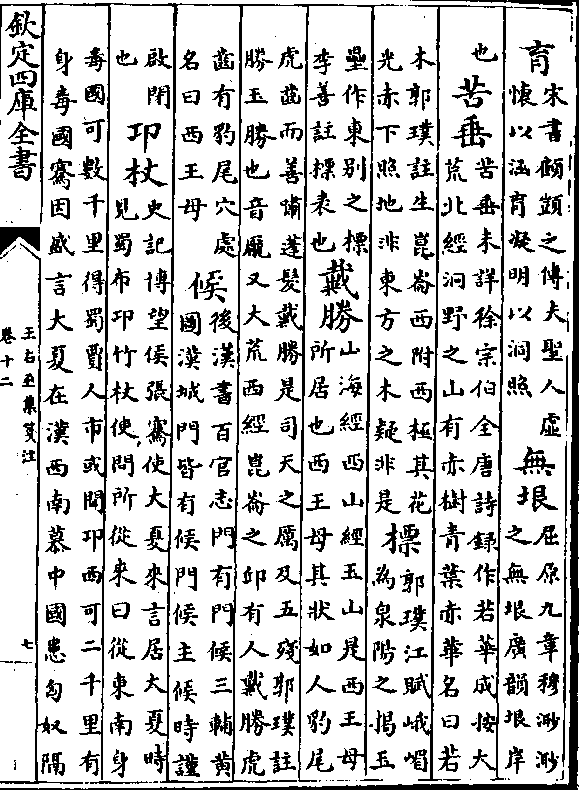 育宋書顧顗之傳夫聖人虛
懷以涵育凝明以洞照
無垠屈原九章穆渺渺
之無垠廣韻垠岸
也
苦垂苦垂未詳徐宗伯全唐詩録作若華成按大
荒北經泂野之山有赤樹青葉赤華名曰若
木郭璞註生崑崙西附西極其花
光赤下照地非東方之木疑非是
標郭璞江賦峨嵋
為泉陽之揭玉
壘作東别之標
李善註標表也
戴勝山海經西山經玉山是西王母
所居也西王母其狀如人豹尾
虎齒而善嘯蓬髮戴勝是司天之厲及五殘郭璞註
勝玉勝也音龎又大荒西經崑崙之邱有人戴勝虎
齒有豹尾穴處
名曰西王母
候後漢書百官志門有門候三輔黄
圖漢城門皆有候門候主候時謹
啟閉
也
卭杖史記博望侯張騫使大夏來言居大夏時
見蜀布卭竹杖使問所從來曰從東南身
毒國可數千里得蜀賈人市或聞卭西可二千里有
身毒國騫因盛言大夏在漢西南慕中國患匈奴隔
欽定四庫全書
王右丞集箋注
卷十二
七